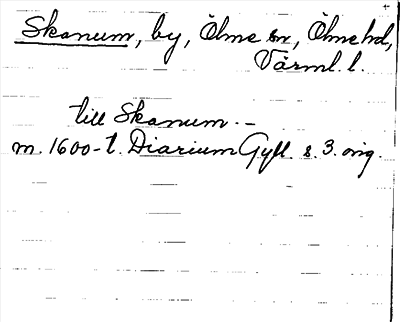 Skanum, by, Ölme sn, Ölme hd,
Värml. l.
till Skanum. -
m. 1600-t. Diarium Gyll. s. 3. orig.